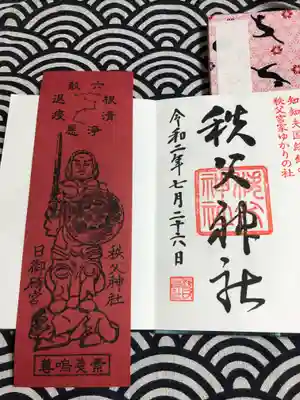 知知夫国総鎮守
秩父宮家ゆかりの社
秩父神社
令和二年七月二十六日
六根清浄
悪疫退散
秩父神社
日御碕宮
素戔嗚尊